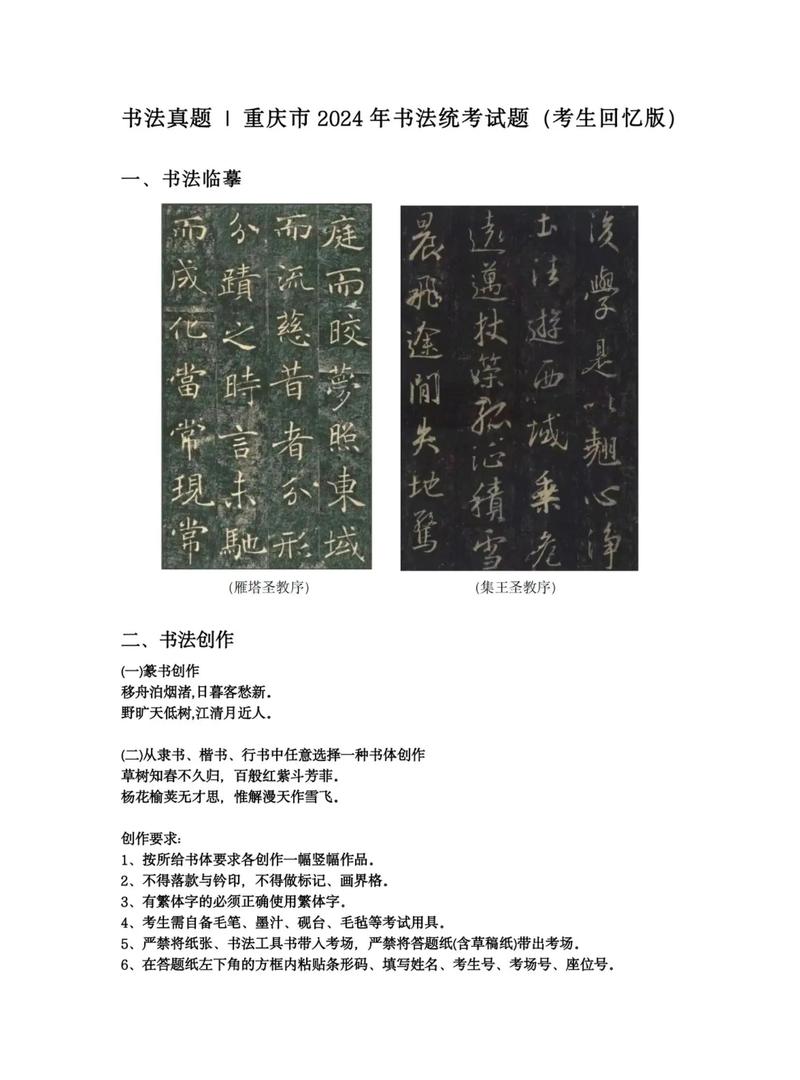 书法真题 | 重庆市 2024 年书法统考试题（考生回忆版）
一、书法临摹
庭而皎夢照東域
而流慈昔者分形
分蹟之時言未馳
而成化當常現常
(雁塔圣教序)
後學是以翹心淨
土法遊西域乘危
遠邁杖策孤征積雪
晨飛途間失地驚
(集王圣教序)
二、书法创作
(一)篆书创作
移舟泊烟渚,日暮客愁新。
野旷天低树,江清月近人。
(二)从隶书、楷书、行书中任意选择一种书体创作
草树知春不久归，百般红紫斗芳菲。
杨花榆荚无才思，惟解漫天作雪飞。
创作要求:
1、按所给书体要求各创作一幅竖幅作品。
2、不得落款与钤印，不得做标记、画界格。
3、有繁体字的必须正确使用繁体字。
4、考生需自备毛笔、墨汁、砚台、毛毡等考试用具。
5、严禁将纸张、书法工具书带入考场，严禁将答题纸(含草稿纸)带出考场。
6、在答题纸左下角的方框内粘贴条形码、填写姓名、考生号、考场号、座位号。